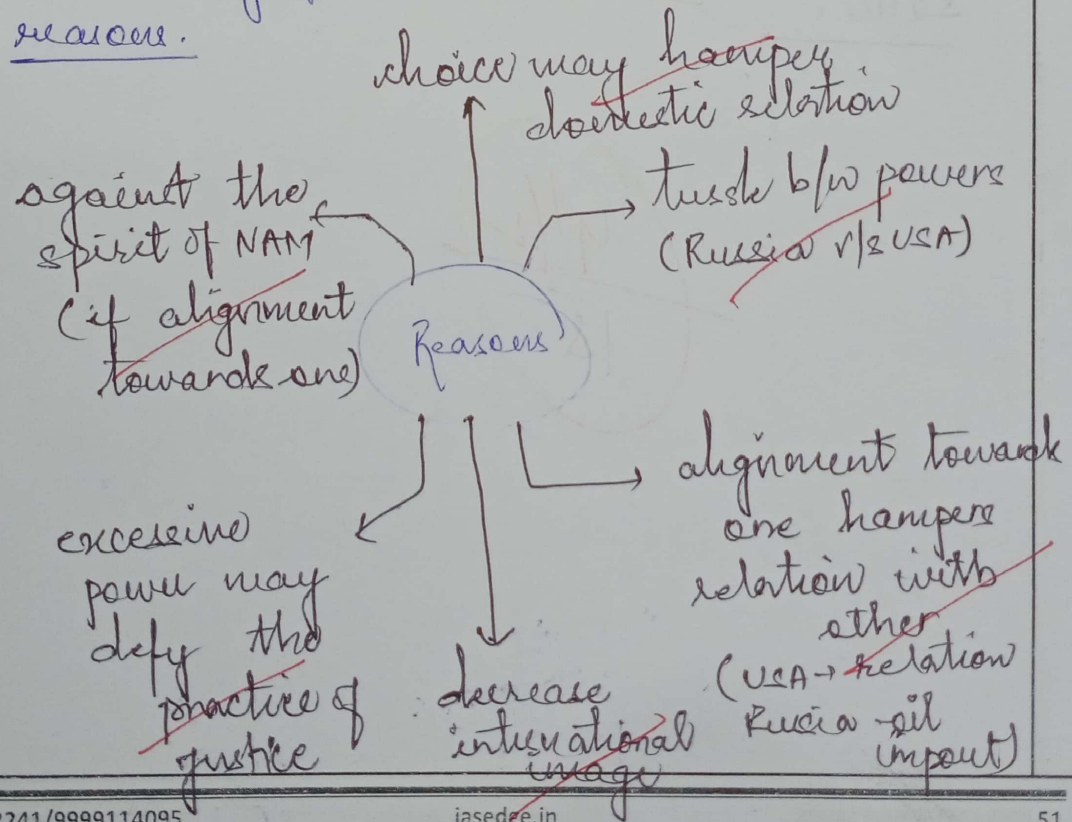 reasons.
choice may hamper
domestic relation
against the
spirit of NAM
(if alignment
towards one)
tussle b/w powers
(Russia v/s USA)
Reasons
alignment towards
one hampers
relation with
other
(USA → relation
Russia oil
import)
excessive
power may
defy the
practice of
justice
decrease
international
image
2241/9999114095
iasedge.in
51